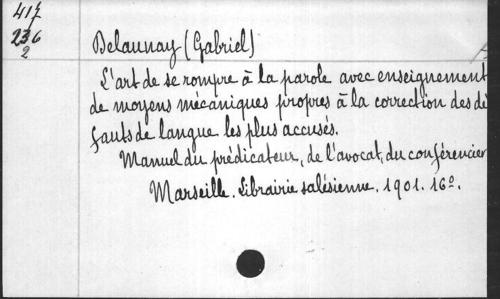 417
236
2
Delaunay (Gabriel)
L'art de se rompre à la parole avec enseignement
de moyens mécaniques propres à la correction des dé
fauts de langue les plus accusés.
Manuel du prédicateur, de l'avocat, du conférencier
Marseille. Librairie salésienne. 1901. 16º.